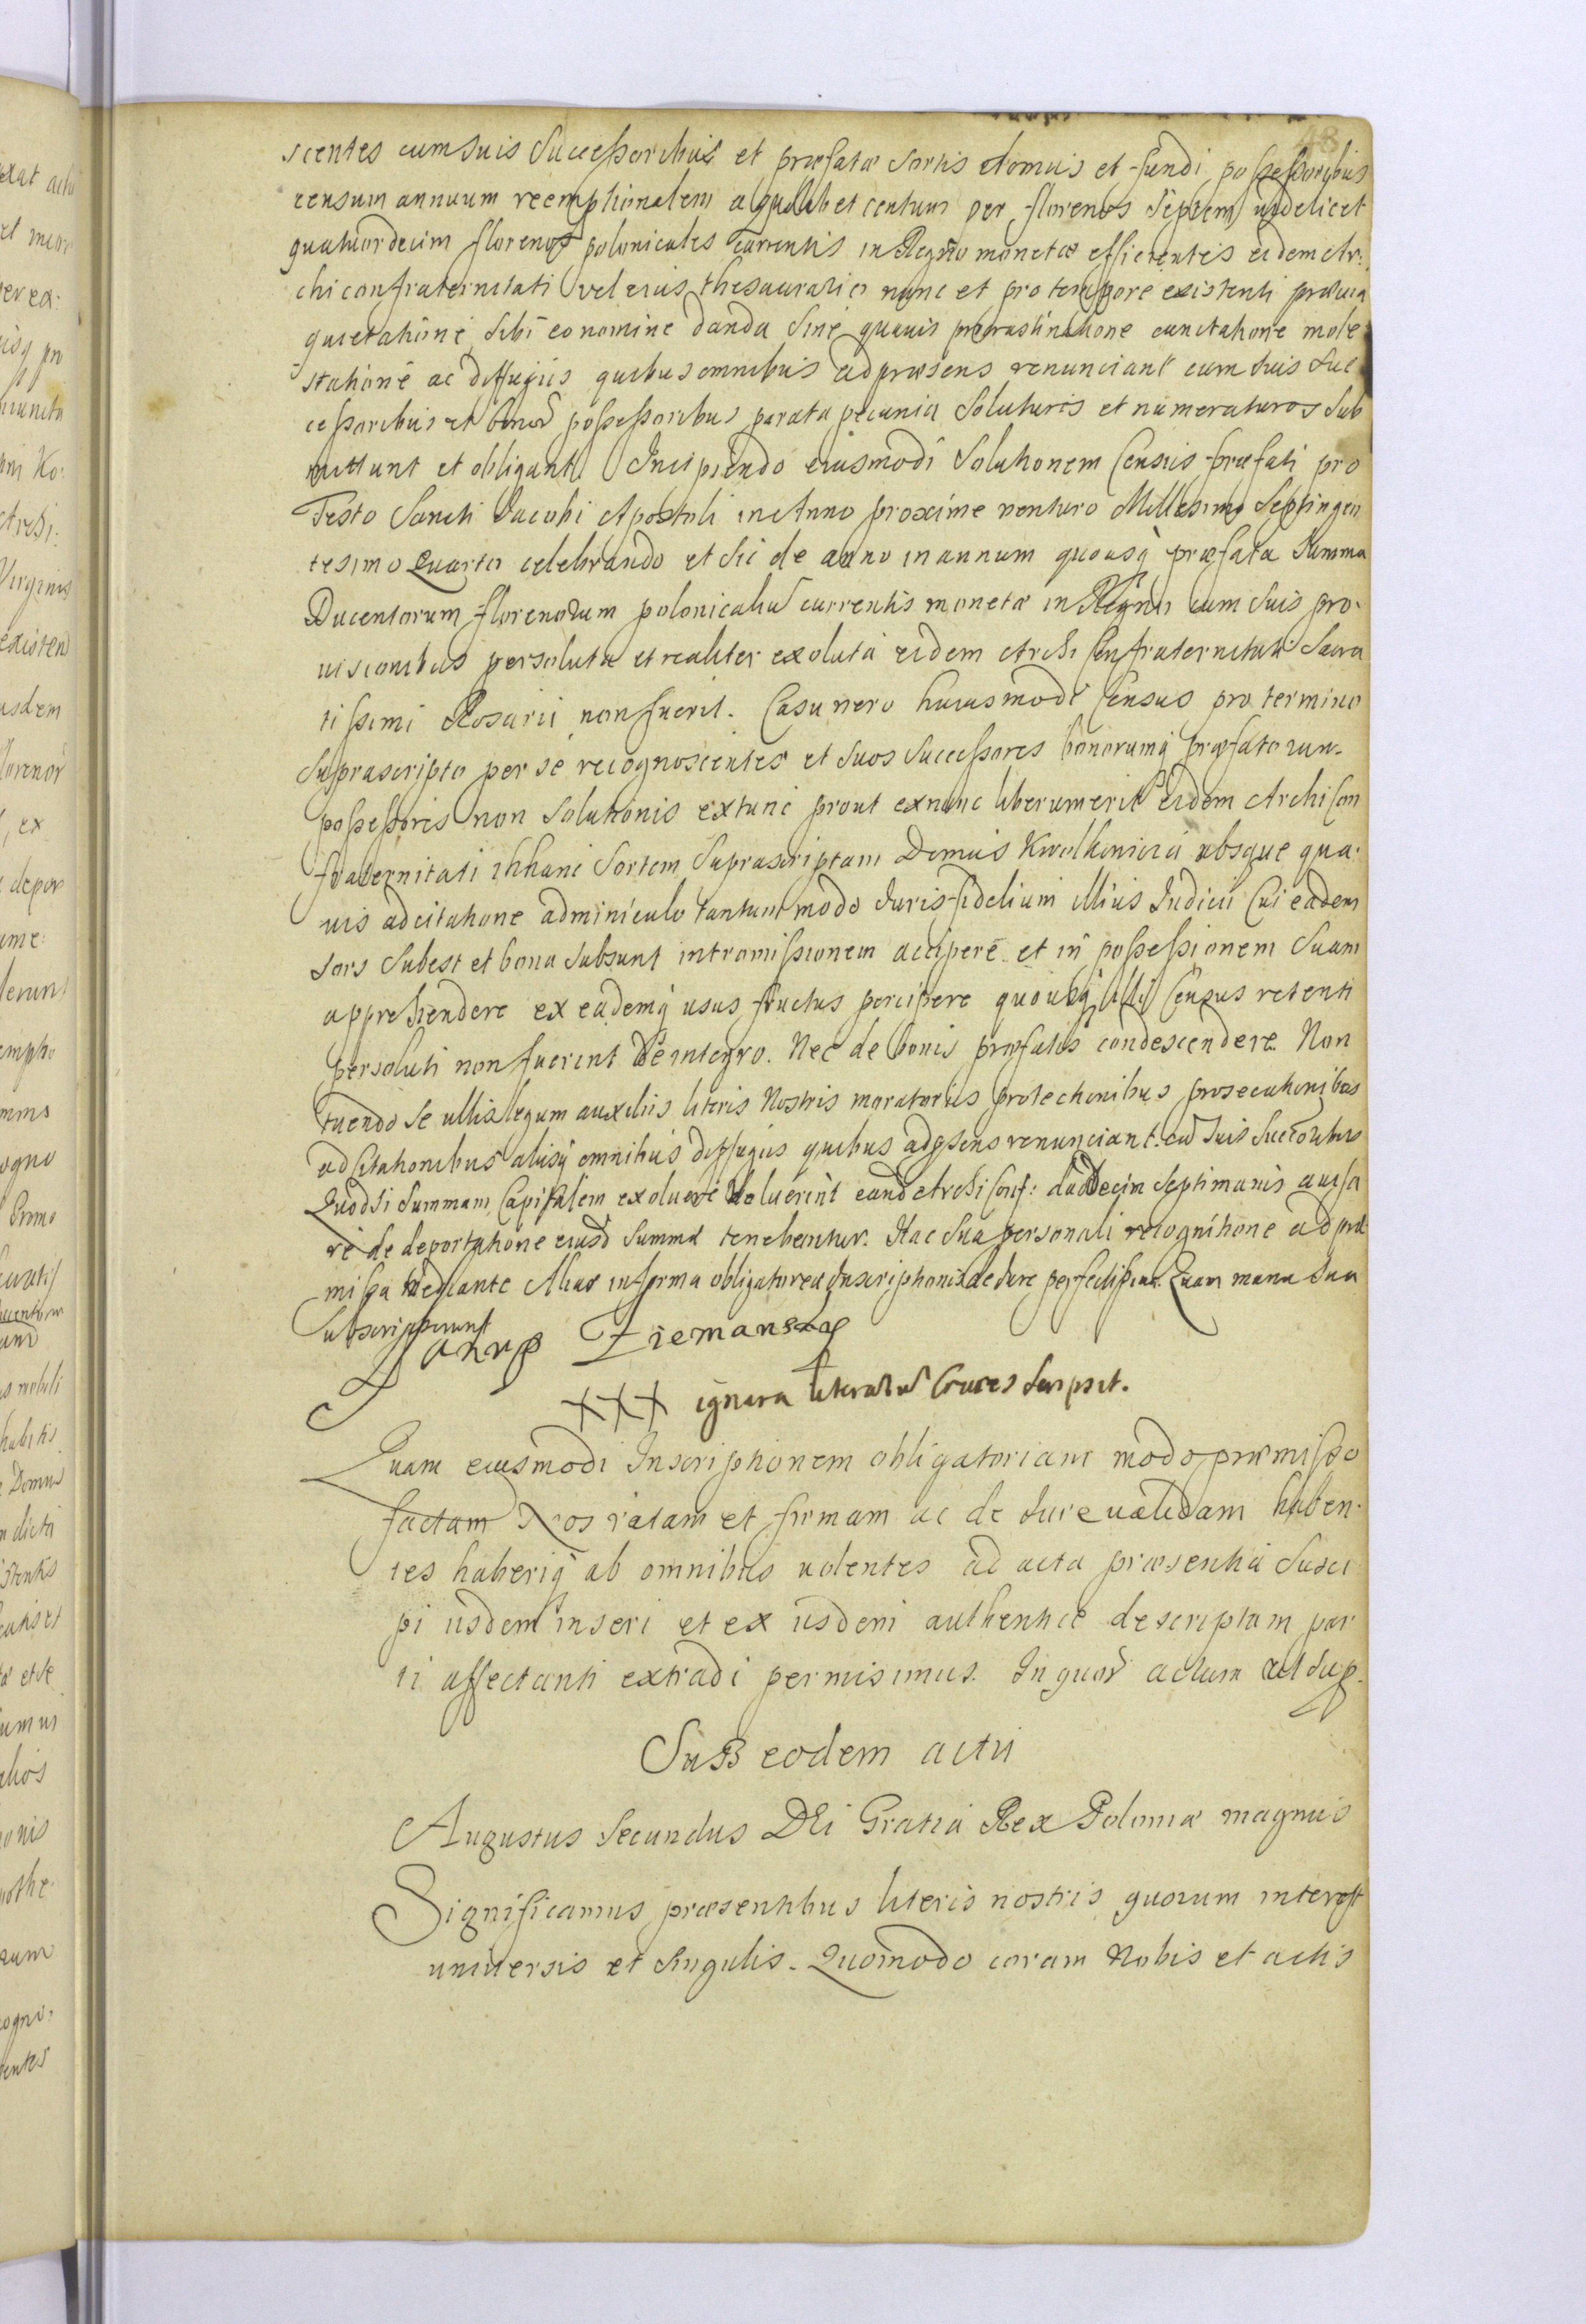 48
scentes cum suis Successoribus et præfatæ Sortis domus et fundi possessoribus
censum annuum reemptionalem a quolibet centum per florenos Septem videlicet
quatuordecim florenos polonicales currentis in Regno monetæ efficientes eidem Ar:
chiconfraternitati vel eius thesaurario nunc et pro tempore existenti prævia
quietatione sibi eo nomine danda sine quavis procrastinatione cunctatione mole
statione ac diffugiis quibus omnibus ad præsens renunciant cum suis Suc
cessoribus et bonor possessoribus parata pecunia soluturos et numeraturos sub
mittunt et obligant. Incipiendo eiusmodi Solutionem Census præfati pro
Festo Sancti Jacobi Apostoli in Anno proxime venturo Millesimo Septingen
tesimo Quarto celebrando et sic de anno in annum quousq præfata Summa
Ducentorum florenorum polonicaliu currentis monetæ in Regno cum suis pro-
visionibus persoluta et realiter exoluta eidem Archi Confraternitati Sacra
tissimi Rosarii non fuerit. Casu vero huiusmodi Census pro termino
Suprascripto per se recognoscentes et suos Successores bonorumq præfatorum
possessores non solutionis extunc prout exnunc liberum erit eidem Archi Con
fraternitati illhanc Sortem Suprascriptam Domus absque qua
vis adcitatione adminiculo tantummodo Juris fidelium illius Judicii Cui eadem
sors subest et bona subsunt intromissionem accipere et in possessionem suam
apprehendere ex eademq usus fructus percipere quousq illi Census retenti
persoluti non fuerint de integro. Nec de bonis præfatis condescendere. Non
tuendo se ullis legum auxiliis literis Nostris moratoriis protectionibus prosecutionibus
adcitationibus aliisq omnibus diffugiis quibus adpsens renunciant cu suis
Quod si Summam Capitalem exoluere voluerint eand Archi Conf: duodecim septimanis auisa
re de deportatione eiusd Summæ tenebuntur. Hac sua personali recognitione ad præ
missa mediante Alias in forma obligatorea Inscriptionis de Jure perfectissima. Quam manu sua
subscripserunt
Ziemansky
XXX ignara literaru Cruces scripsit.
Quam eiusmodi Inscriptionem obligatoriam modo præmisso
factam Nos ratam et firmam ac de Jure validam haben-
tes haberiq ab omnibus volentes ad acta præsentia susci
pi iisdem inseri et ex iisdem authentice descriptam par
ti affectanti extradi permisimus. In quor actum ut sup.
Sub eodem actu
Augustus Secundus DEi Gratia Rex Poloniæ magnus
Significamus præsentibus literis nostris quorum interest
universis et singulis. Quomodo coram Nobis et actis